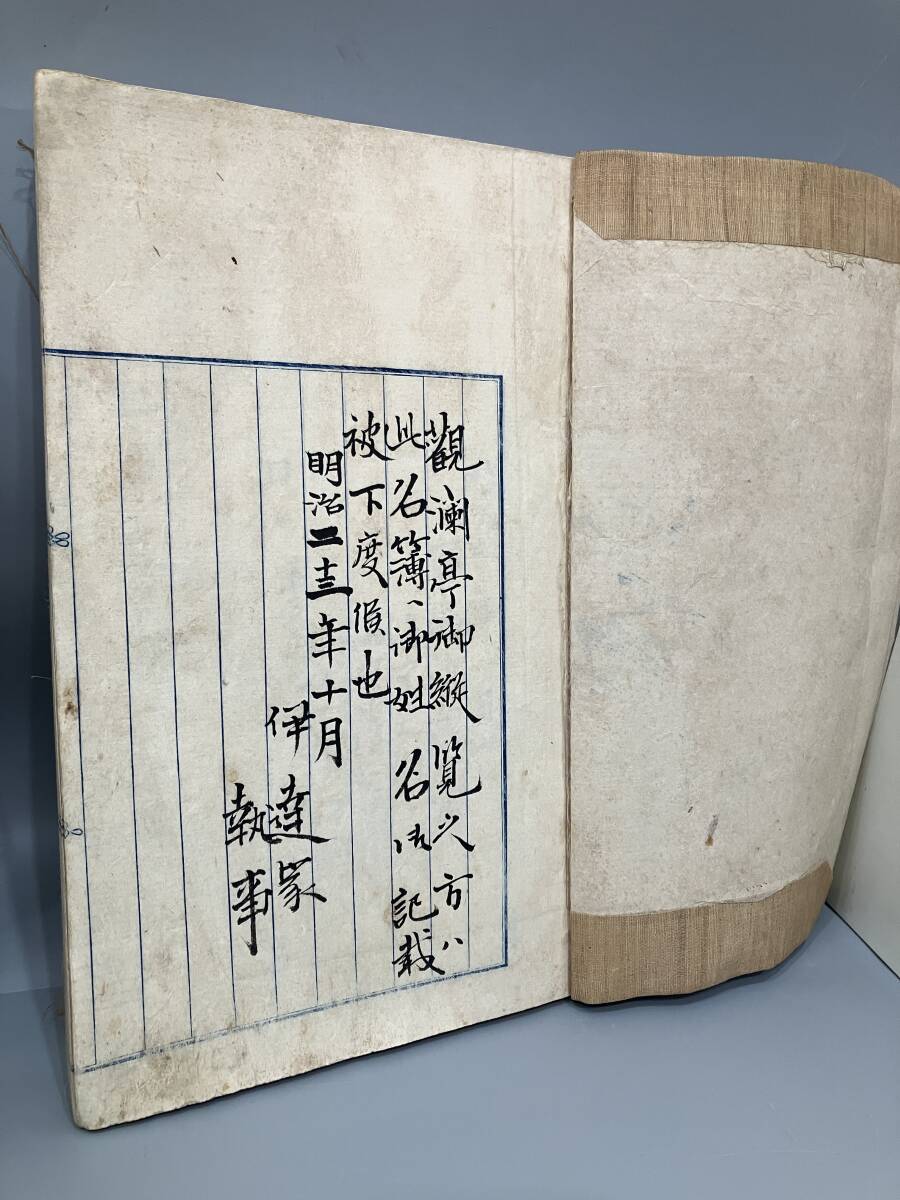 觀瀾亭御縦覧之方ハ
此名簿ヘ御姓名御記載
被下度候也
明治二十三年十月
伊達家
執事